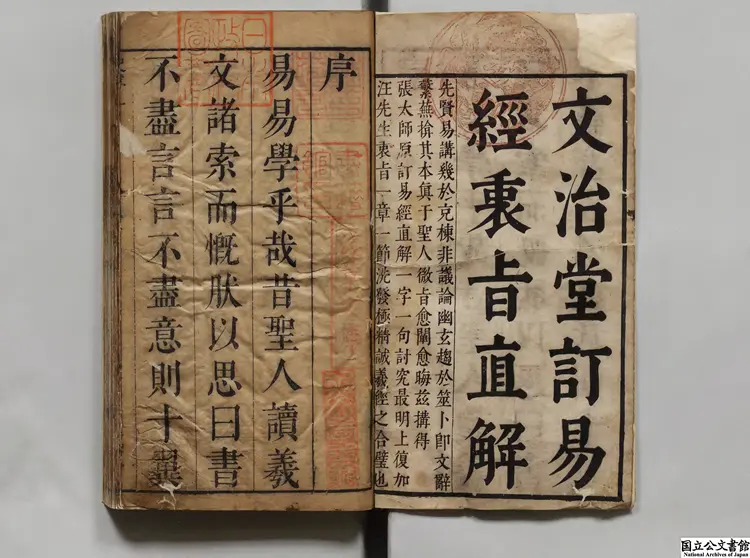 文治堂訂易
經衷㫖直解
先賢易講幾於充棟非議論幽玄趨於筮卜卽文辭
繁蕪搶其本眞于聖人微㫖愈闡愈晦玆搆得
張太師原訂易經直解一字一句討究最明上復加
汪先生衷㫖一章一節洗發極精誠羲經之合璧也
序
易易學乎哉昔聖人讀羲
文諸索而慨肰以思曰書
不盡言言不盡意則十翼
国立公文書館
National Archives of Japan